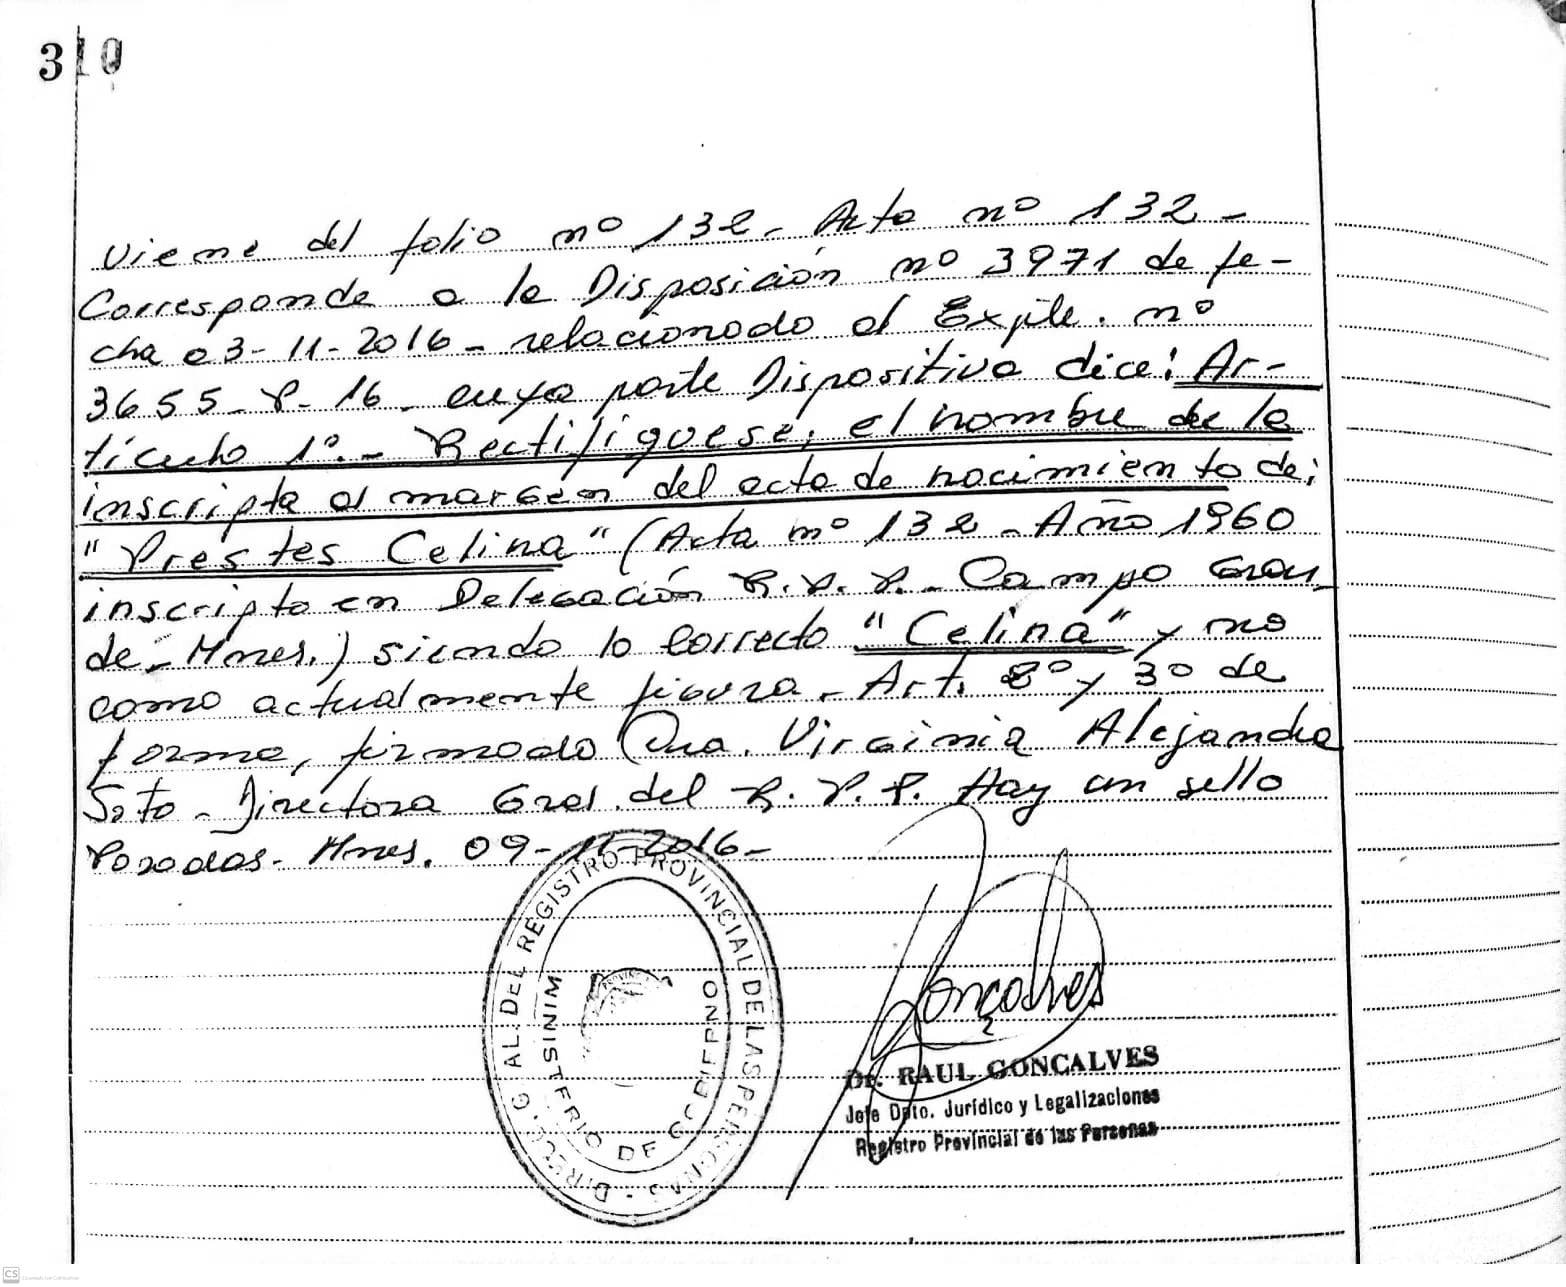 310
Viene del folio nº 132 - Acta nº 132 -
Corresponde a la Disposición nº 3971 de fe-
cha 03-11-2016 - relacionado al Expte. nº
3655 - P - 16 - cuya parte Dispositiva dice: Ar-
tículo 1º.- Rectifiquese, el nombre de la
inscripta al margen del acta de nacimiento de;
"Prestes Celina" (Acta nº 132 - Año 1960
inscripta en Delegación R.P.P. - Campo Gran-
de - Mnes.) siendo lo correcto "Celina" y no
como actualmente figura. Art. 2º y 3º de
forma, firmado Dra. Virginia Alejandra
Soto - Directora Gral. del R.P.P. Hay un sello
Posadas - Mnes. 09-11-2016 -
DIREC. GAL. DEL REGISTRO PROVINCIAL DE LAS PERSONAS
MINISTERIO DE GOBIERNO
Gonçalves
Dr. RAUL GONCALVES
Jefe Dpto. Jurídico y Legalizaciones
Registro Provincial de las Personas
CS